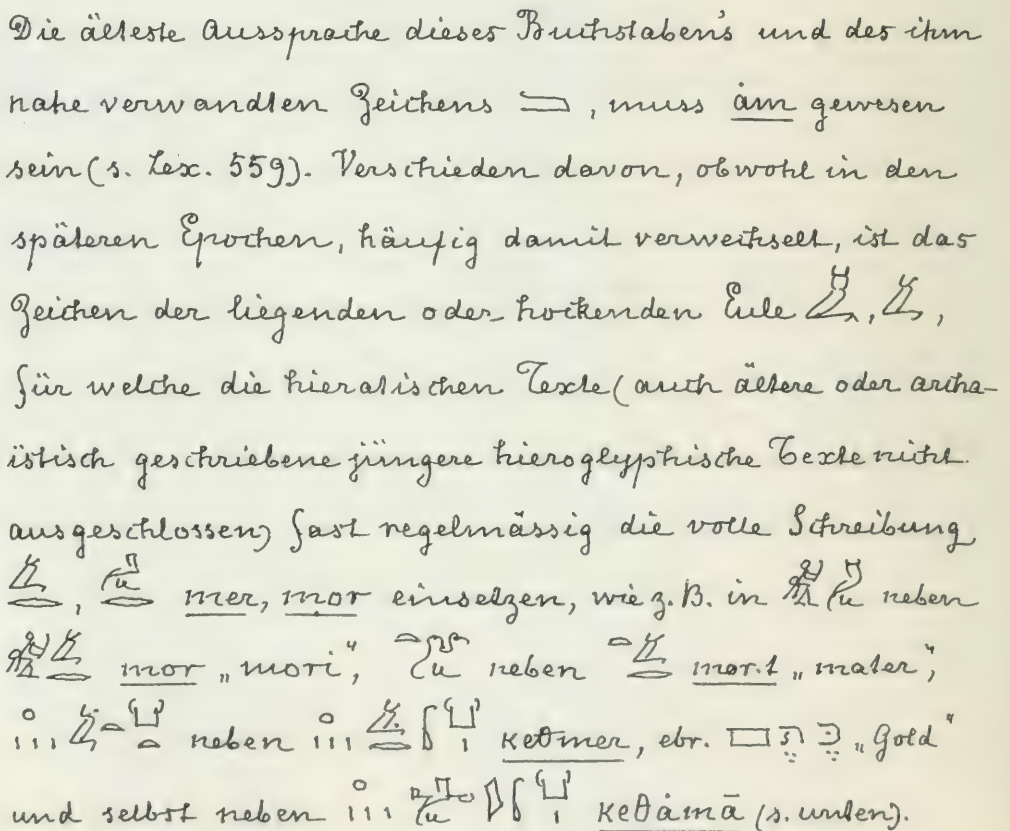 Die älteste Aussprache dieses Buchstaben's und des ihm
nahe verwandten Zeichens, muss åm gewesen
sein (s. Lex. 559). Verschieden davon, obwohl in den
späteren Epochen, häufig damit verwechselt, ist das
Zeichen der liegenden oder hockenden Eule , ,
für welche die hieratischen Texte (auch ältere oder archa-
istisch geschriebene jüngere hieroglyphische Texte nicht
ausgeschlossen) fast regelmässig die volle Schreibung
, mer, mor einsetzen, wie z. B. in neben
mor „mori", neben mor.t „mater",
neben keθmer, ebr. כֶּתֶם „Gold"
und selbst neben keθåmā (s. unten).